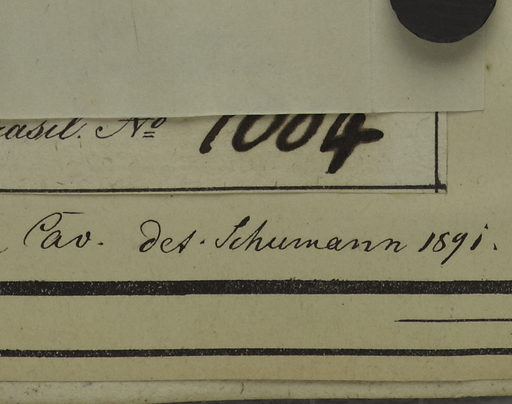 Brasil. Nº 1004
Cav. det. Schumann 1891.